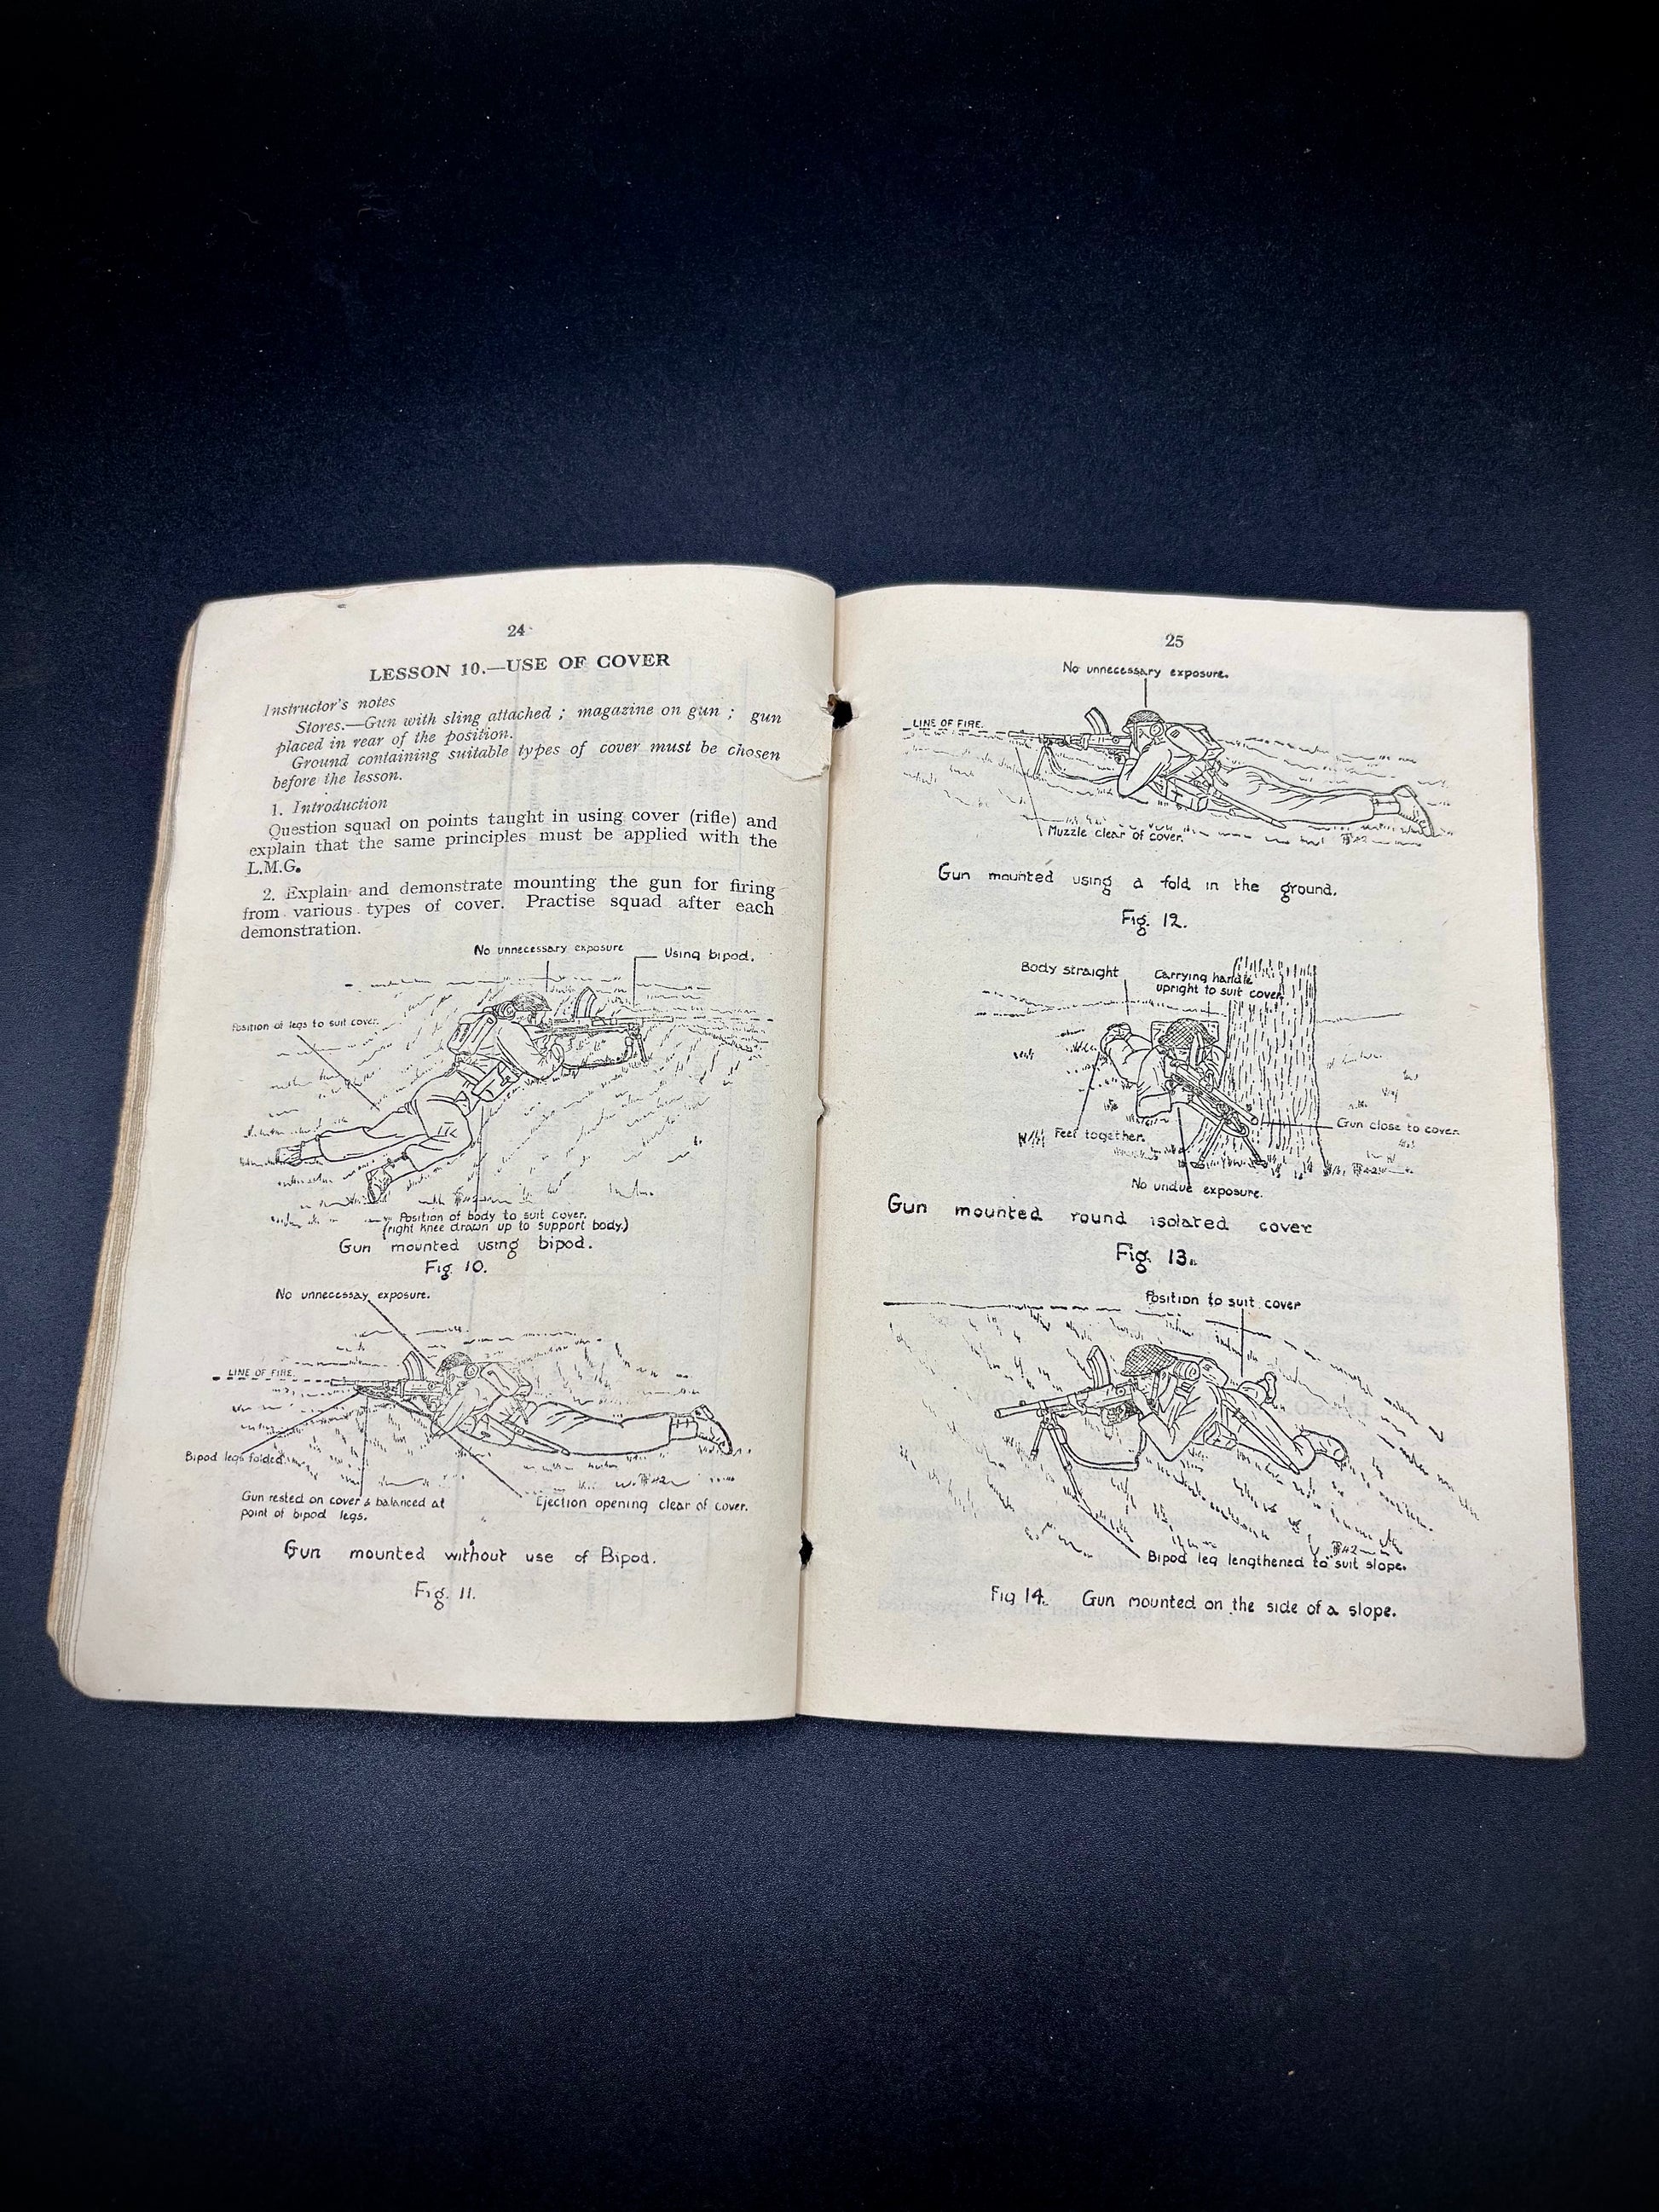 24
LESSON 10.—USE OF COVER
Instructor's notes
Stores.—Gun with sling attached ; magazine on gun ; gun
placed in rear of the position.
Ground containing suitable types of cover must be chosen
before the lesson.
1. Introduction
Question squad on points taught in using cover (rifle) and
explain that the same principles must be applied with the
L.M.G.
2. Explain and demonstrate mounting the gun for firing
from various types of cover. Practise squad after each
demonstration.
No unnecessary exposure
Using bipod.
Position of legs to suit cover.
Position of body to suit cover.
(right knee drawn up to support body.)
Gun mounted using bipod.
Fig. 10.
No unnecessay exposure.
LINE OF FIRE.
Bipod legs folded.
Gun rested on cover & balanced at
point of bipod legs.
Ejection opening clear of cover.
Gun mounted without use of Bipod.
Fig. 11.
25
No unnecessary exposure.
LINE OF FIRE.
Muzzle clear of cover.
Gun mounted using a fold in the ground.
Fig. 12.
Body straight
Carrying handle
upright to suit cover.
Feet together.
Gun close to cover.
No undue exposure.
Gun mounted round isolated cover
Fig. 13.
Position to suit cover
Bipod leg lengthened to suit slope.
Fig 14. Gun mounted on the side of a slope.